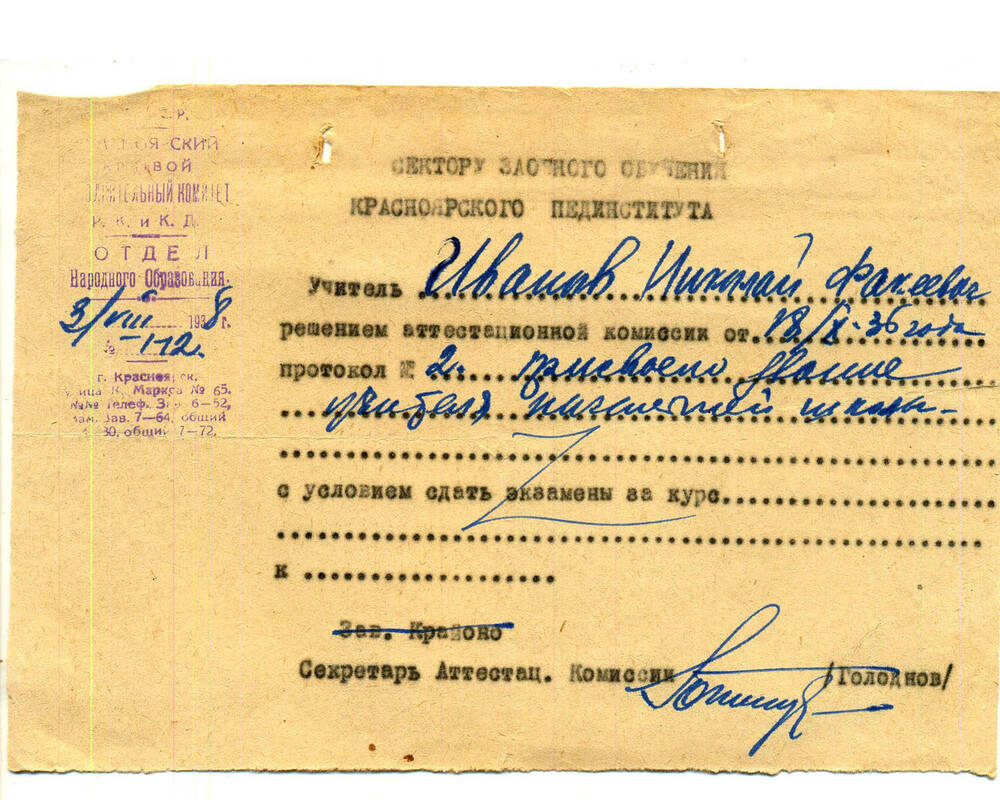 КРАЕВОЙ
ИСПОЛНИТЕЛЬНЫЙ КОМИТЕТ
Р. К. и К. Д.
ОТДЕЛ
Народного Образования.
3/VIII 1938 г.
№ -112.
г. Красноярск.
улица К. Маркса № 65.
№№ Телеф. Зав 6-52,
зам. зав. 7-64, общий
общий 7-72.
СЕКТОРУ ЗАОЧНОГО ОБУЧЕНИЯ
КРАСНОЯРСКОГО ПЕДИНСТИТУТА
Учитель Иванов Николай Факеевич
решением аттестационной комиссии от 18/IX-36 года
протокол № 2. присвоено звание
учителя начальной школы-
с условием сдать экзамены за курс
к
Зав. Крайоно
Секретарь Аттестац. Комиссии /Голоднов/